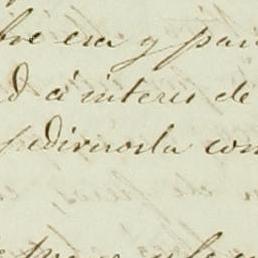 bre esa y par
d á interes de
pedirnosla con